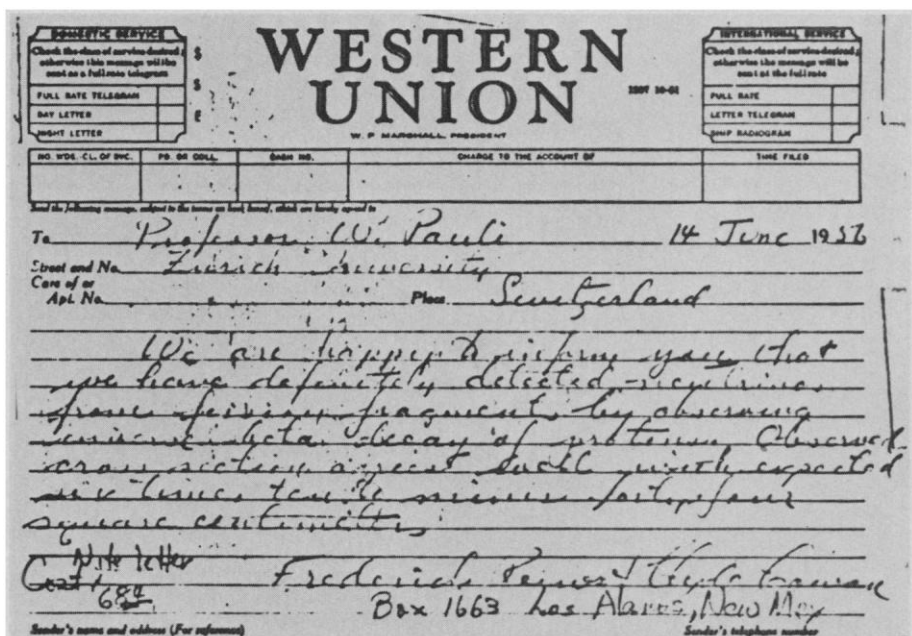 DOMESTIC SERVICE
Check the class of service desired;
otherwise this message will be
sent as a full rate telegram
FULL RATE TELEGRAM
DAY LETTER
NIGHT LETTER
$
S
E
WESTERN
UNION
1207 10-51
W. P. MARSHALL, PRESIDENT
INTERNATIONAL SERVICE
Check the class of service desired;
otherwise this message will be
sent at the full rate
FULL RATE
LETTER TELEGRAM
SHIP RADIOGRAM
NO. WDS.-CL. OF SVC.
PD. OR COLL.
CASH NO.
CHARGE TO THE ACCOUNT OF
TIME FILED
Send the following message, subject to the terms on back hereof, which are hereby agreed to
To Professor W. Pauli 14 June 1956
Street and No. Zurich University
Care of or
Apt. No. Place Switzerland
We are happy to inform you that
we have definitely detected neutrinos
from fission fragments by observing
inverse beta decay of protons. Observed
cross section agrees well with expected
six times ten to minus forty four
square centimeters
Nite letter
Cost 684
Frederick Reines & Clyde Cowan
Box 1663 Los Alamos, New Mex
Sender's name and address (For reference)
Sender's telephone number